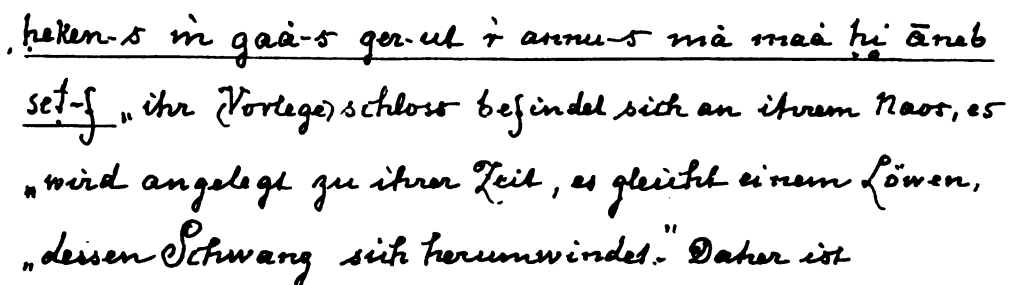 ḥeken-s ṁ gaȧ-s ger-ut ṙ annu-s mȧ maȧ ḥi āneb
seṭ-f „ihr (Vorlege)schloss befindet sich an ihrem Naos, es
„wird angelegt zu ihrer Zeit, es gleicht einem Löwen,
„dessen Schwanz sich herumwindet." Daher ist